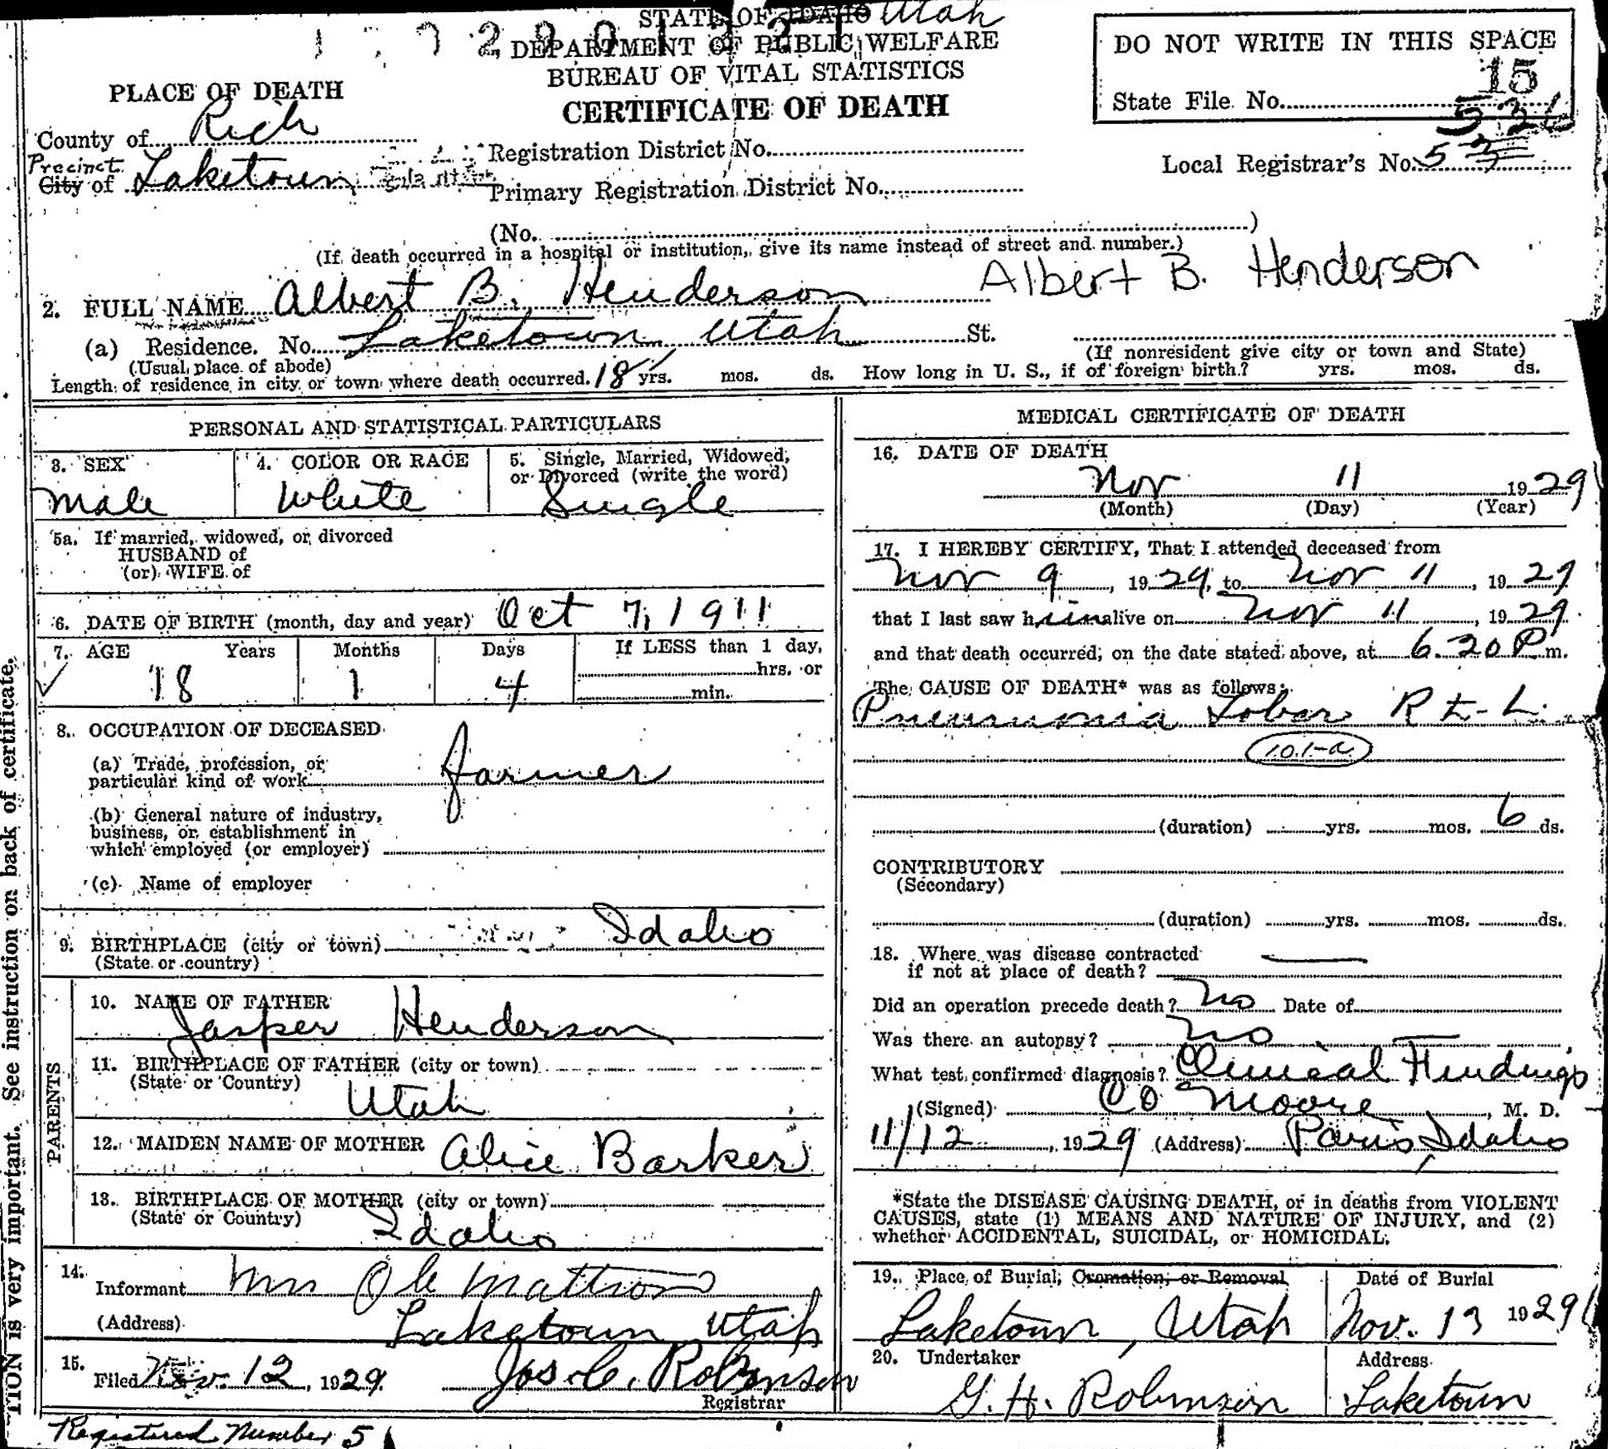 STATE OF IDAHO Utah
DEPARTMENT OF PUBLIC WELFARE
BUREAU OF VITAL STATISTICS
CERTIFICATE OF DEATH
DO NOT WRITE IN THIS SPACE
15
State File No.
526
Local Registrar's No. 53
PLACE OF DEATH
County of Rich
Precinct
City of Laketown
Registration District No.
Primary Registration District No.
(No. )
(If death occurred in a hospital or institution, give its name instead of street and number.)
2. FULL NAME Albert B. Henderson Albert B. Henderson
(a) Residence. No. Laketown, Utah St.
(Usual place of abode) (If nonresident give city or town and State)
Length of residence in city or town where death occurred. 18 yrs. mos. ds. How long in U. S., if of foreign birth? yrs. mos. ds.
PERSONAL AND STATISTICAL PARTICULARS
3. SEX
Male
4. COLOR OR RACE
White
5. Single, Married, Widowed, or Divorced (write the word)
Single
5a. If married, widowed, or divorced
HUSBAND of
(or) WIFE of
6. DATE OF BIRTH (month, day and year) Oct 7, 1911
7. AGE Years Months Days If LESS than 1 day,
hrs. or
18 1 4 min.
8. OCCUPATION OF DECEASED
(a) Trade, profession, or
particular kind of work farmer
(b) General nature of industry,
business, or establishment in
which employed (or employer)
(c) Name of employer
9. BIRTHPLACE (city or town) Idaho
(State or country)
PARENTS
10. NAME OF FATHER
Jasper Henderson
11. BIRTHPLACE OF FATHER (city or town)
(State or Country) Utah
12. MAIDEN NAME OF MOTHER Alice Barker
13. BIRTHPLACE OF MOTHER (city or town)
(State or Country) Idaho
14. Informant Mrs Ole Mattson
(Address) Laketown, Utah
15. Filed Nov. 12, 1929 Jos. C. Robinson
Registrar
Registered Number 5
MEDICAL CERTIFICATE OF DEATH
16. DATE OF DEATH
Nov 11 1929
(Month) (Day) (Year)
17. I HEREBY CERTIFY, That I attended deceased from
Nov 9, 1929, to Nov 11, 1929
that I last saw him alive on Nov 11, 1929.
and that death occurred, on the date stated above, at 6.20 P m.
The CAUSE OF DEATH* was as follows:
Pneumonia Lobar Rt-L.
101-a
(duration) yrs. mos. 6 ds.
CONTRIBUTORY
(Secondary)
(duration) yrs. mos. ds.
18. Where was disease contracted
if not at place of death?
Did an operation precede death? No Date of
Was there an autopsy? No
What test confirmed diagnosis? Clinical Findings
(Signed) CO Moore, M. D.
11/12, 1929 (Address) Paris, Idaho
*State the DISEASE CAUSING DEATH, or in deaths from VIOLENT
CAUSES, state (1) MEANS AND NATURE OF INJURY, and (2)
whether ACCIDENTAL, SUICIDAL, or HOMICIDAL.
19. Place of Burial, Cremation, or Removal Date of Burial
Laketown, Utah Nov. 13 1929
20. Undertaker Address
G. H. Robinson Laketown
TION is very important. See instruction on back of certificate.